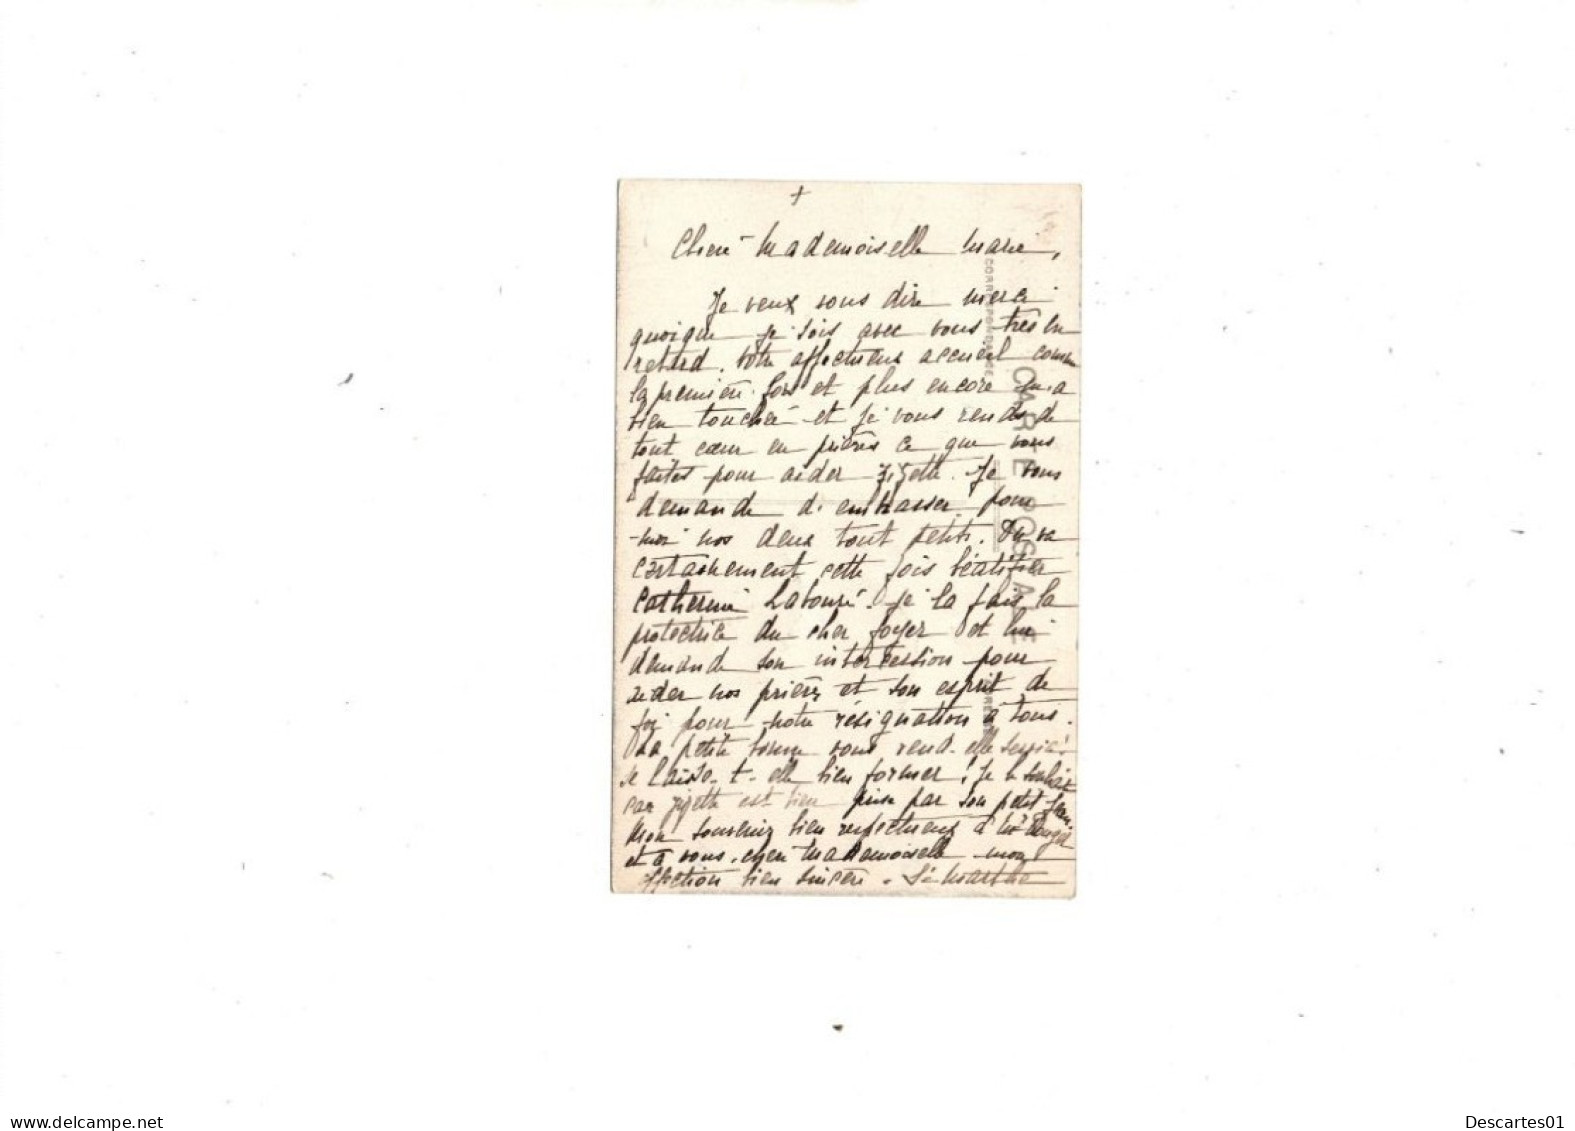 +
Chère Mademoiselle Marie,
Je veux vous dire merci
quoique je sois avec vous très en
retard. Votre affectueux accueil comme
la première fois et plus encore m'a
bien touchée et je vous rends de
tout cœur en prières ce que vous
faites pour aider Zizette. Je vous
demande d'embrasser pour
moi nos deux tout petits. On va
certainement cette fois béatifier
Catherine Labouré. Je la fais la
protectrice du cher foyer et lui
demande son intercession pour
aider nos prières et son esprit de
foi pour notre résignation à tous.
La petite bonne vous rend-elle service?
se laisse-t-elle bien former! Je le souhaite
car Zizette est bien prise par son petit Jean.
Mon souvenir bien respectueux à
et à vous, chère Mademoiselle mon
affection bien sincère. Sr Marthe
CORRESPONDANCE
CARTE POSTALE
www.delcampe.net
Descartes01